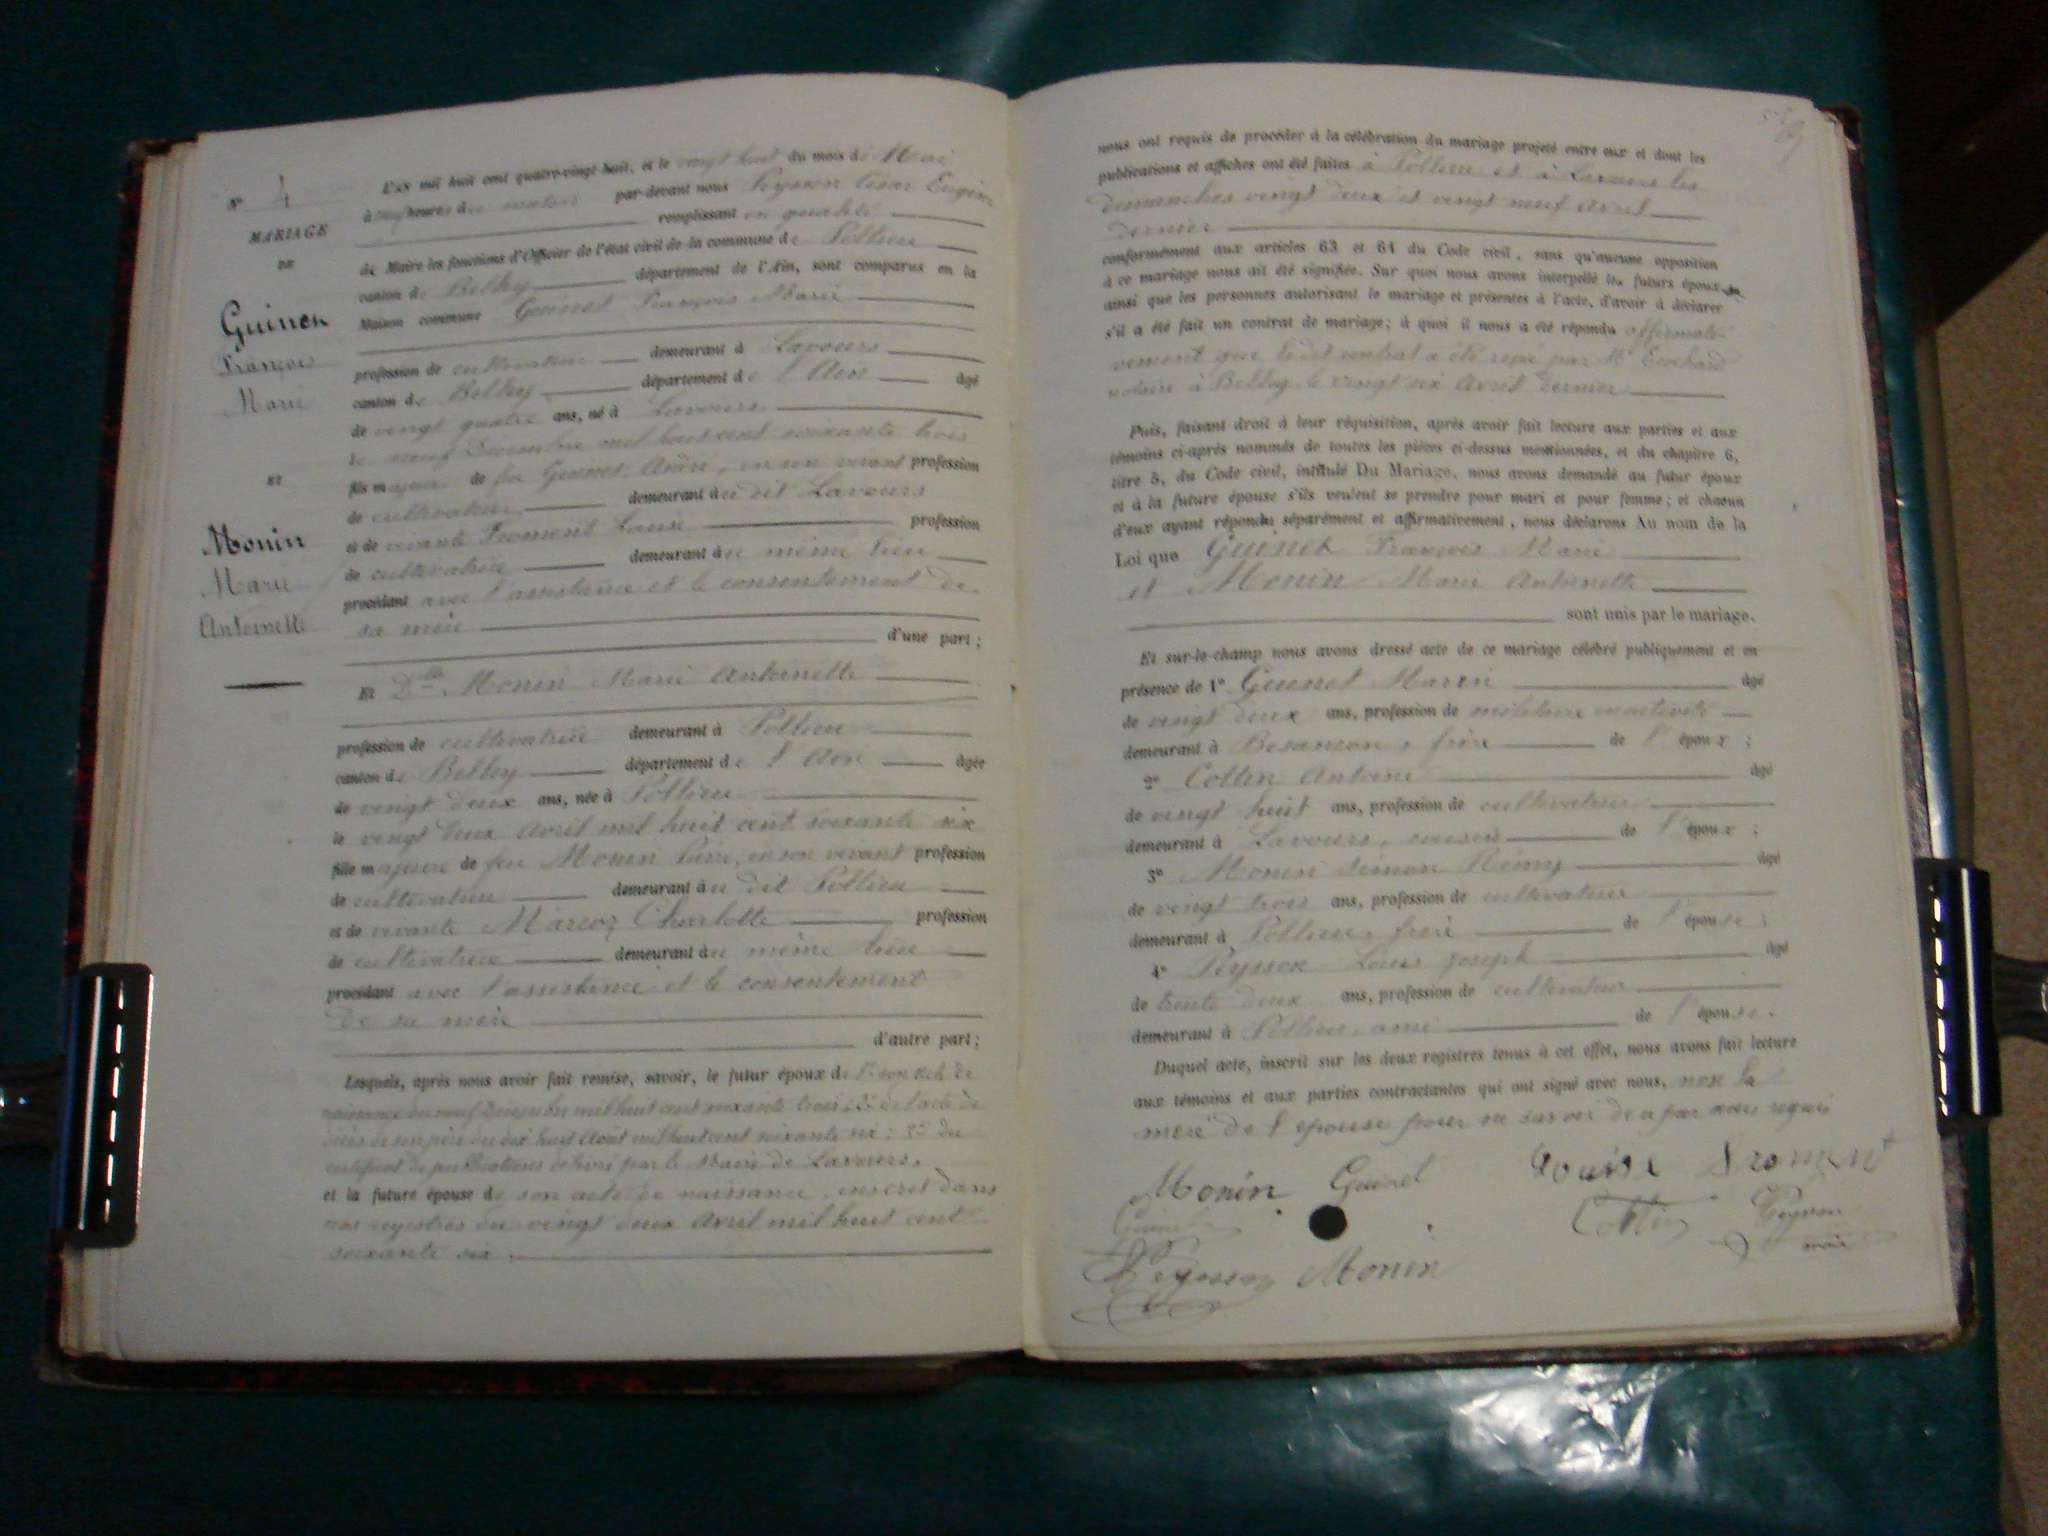 N° 4
MARIAGE
DE
Guinet
François
Marie
ET
Monin
Marie
Antoinette
L'an mil huit cent quatre-vingt-huit, et le vingt huit du mois de Mai
à heures du matin par-devant nous Peysson César Eugène
remplissant en qualité
de Maire les fonctions d'Officier de l'état civil de la commune de Pollieu
canton de Belley département de l'Ain, sont comparus en la
Maison commune Guinet François Marie
profession de cultivateur demeurant à Lavours
canton de Belley département de l'Ain âgé
de vingt quatre ans, né à Lavours
le neuf Décembre mil huit cent soixante trois
fils majeur de feu Guinet André, en son vivant profession
de cultivateur demeurant au dit Lavours
et de vivante Froment Louise profession
de cultivatrice demeurant au même lieu
procédant avec l'assistance et le consentement de
sa mère
d'une part;
Et Dlle Monin Marie Antoinette
profession de cultivatrice demeurant à Pollieu
canton de Belley département de l'Ain âgée
de vingt deux ans, née à Pollieu
le vingt deux Avril mil huit cent soixante six
fille majeure de feu Monin Pierre, en son vivant profession
de cultivateur demeurant au dit Pollieu
et de vivante Marcoz Charlotte profession
de cultivatrice demeurant au même lieu
procédant avec l'assistance et le consentement
de sa mère
d'autre part;
Lesquels, après nous avoir fait remise, savoir, le futur époux de 1° son acte de
naissance du neuf Décembre mil huit cent soixante trois; 2° de l'acte de
décès de son père du dix huit Août mil huit cent soixante six; 3° du
certificat de publications délivré par le Maire de Lavours.
et la future épouse de son acte de naissance, inscrit dans
nos registres du vingt deux Avril mil huit cent
soixante six.
nous ont requis de procéder à la célébration du mariage projeté entre eux et dont les
publications et affiches ont été faites à Pollieu et à Lavours les
dimanches vingt deux et vingt neuf Avril
dernier
conformément aux articles 63 et 64 du Code civil, sans qu'aucune opposition
à ce mariage nous ait été signifiée. Sur quoi nous avons interpellé les futurs époux
ainsi que les personnes autorisant le mariage et présentes à l'acte, d'avoir à déclarer
s'il a été fait un contrat de mariage; à quoi il nous a été répondu affirmati-
vement que ledit contrat a été reçu par Me
notaire à Belley le vingt six Avril dernier
Puis, faisant droit à leur réquisition, après avoir fait lecture aux parties et aux
témoins ci-après nommés de toutes les pièces ci-dessus mentionnées, et du chapitre 6,
titre 5, du Code civil, intitulé Du Mariage, nous avons demandé au futur époux
et à la future épouse s'ils veulent se prendre pour mari et pour femme; et chacun
d'eux ayant répondu séparément et affirmativement, nous déclarons Au nom de la
Loi que Guinet François Marie
et Monin Marie Antoinette
sont unis par le mariage.
Et sur-le-champ nous avons dressé acte de ce mariage célébré publiquement et en
présence de 1° Guinet Marin âgé
de vingt deux ans, profession de militaire en activité
demeurant à Besançon, frère de l'époux;
2° Collin Antoine âgé
de vingt huit ans, profession de cultivateur
demeurant à Lavours, cousin de l'époux;
3° Monin Simon Rémy âgé
de vingt trois ans, profession de cultivateur
demeurant à Pollieu, frère de l'épouse;
4° Peysson Louis Joseph âgé
de trente deux ans, profession de cultivateur
demeurant à Pollieu, ami de l'épouse.
Duquel acte, inscrit sur les deux registres tenus à cet effet, nous avons fait lecture
aux témoins et aux parties contractantes qui ont signé avec nous, non la
mère de l'épouse pour ne savoir de ce par nous requis
Monin Guinet Louise Froment
Guinet Collin Peysson
Peysson Monin maire